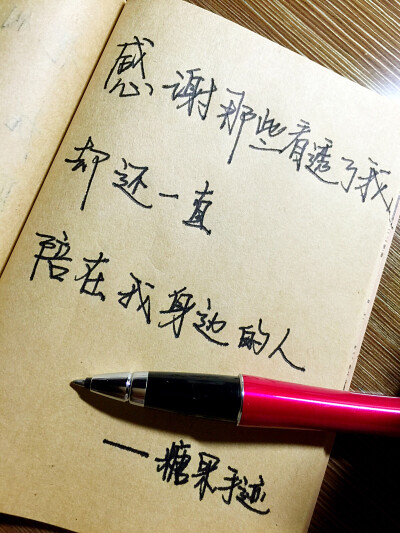 感谢那些看透了我
却还一直
陪在我身边的人
——糖果手迹